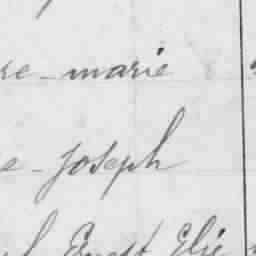 re - marie
e - joseph
l Ernest Elie